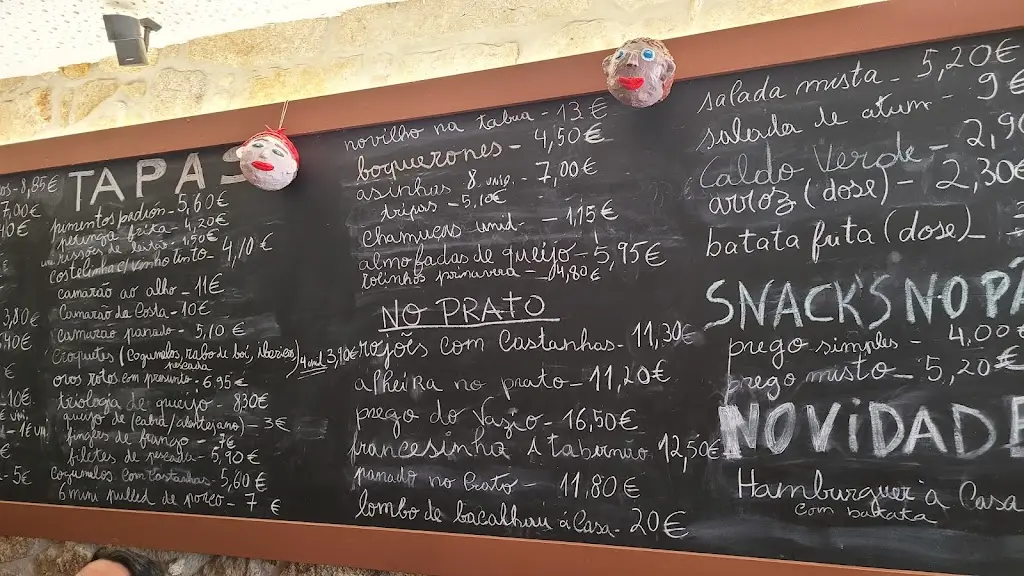 os-8,85€
7,00€
40€
3,80€
40€
-10€
-1€
-5€
TAPAS
pimentos padrón-5,60€
petinga frita-4,20€
rissois de leitão-1,50€
costelinha c/vinho tinto-4,10€
camarão ao alho-11€
Camarão da Costa-10€
camarão panado-5,10€
Croquetes (Cogumelos, rabo de boi, ibericos) 4 uni 3,90€
pescada
ovos rotos com presunto-6,95€
triologia de queijo 8,30€
queijo de (cabra/alentejano)-3€
pingles de frango-7€
filetes de pescada-5,90€
Cogumelos com Castanhas-5,60€
6 mini pulled de porco-7€
novilho na tabua-13€
boquerones-4,50€
asinhas 8 unip.-7,00€
tripas-5,10€
chamuças unid-1,15€
almofadas de queijo-5,95€
rolinhos primavera-4,80€
NO PRATO
rojões com Castanhas-11,30€
alheiRa no prato-11,20€
prego do Vazio-16,50€
francesinha A tabernão 12,50€
panado no Prato-11,80€
lombo de bacalhau á Casa-20€
salada mista-5,20€
salada de atum-9€
Caldo Verde-2,90
arroz (dose)-2,30€
batata frita (dose)-
SNACK'S NO PÃ
prego simples-4,00€
prego misto-5,20€
NOViDADE
Hamburguer à Casa
com batata